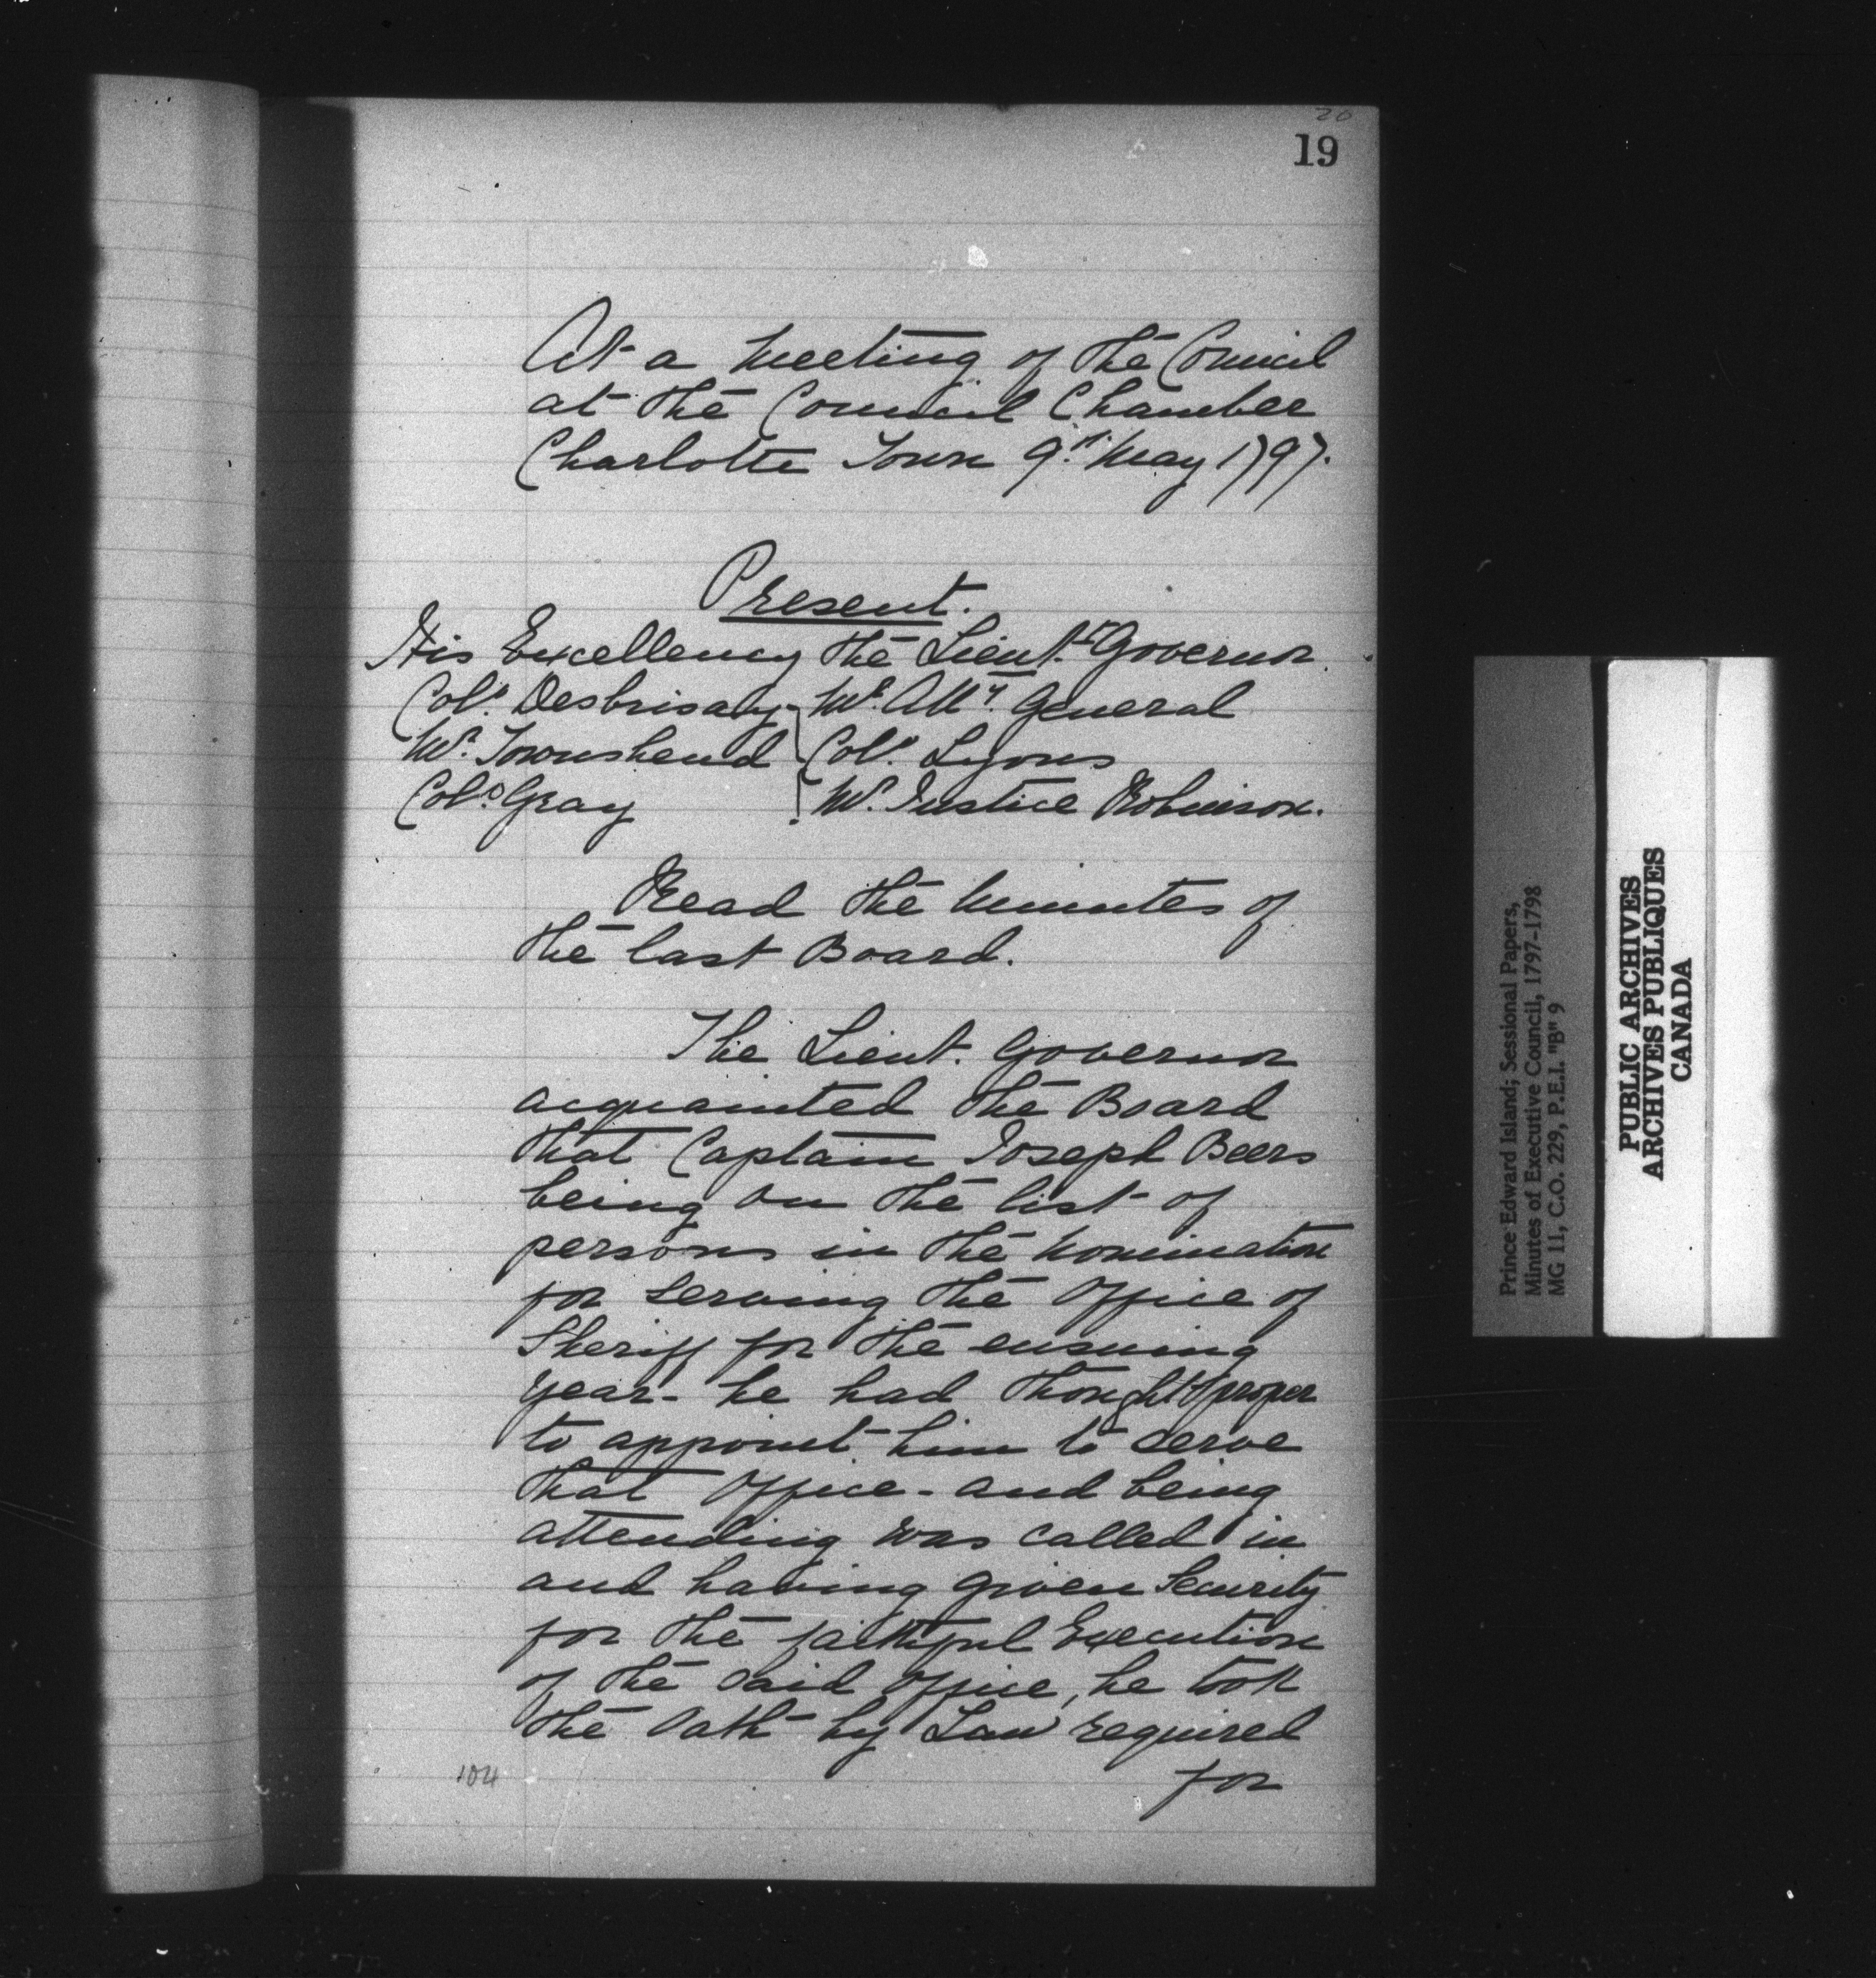 20
19
At a Meeting of the Council
at the Council Chamber
Charlotte Town 9th May 1797.
Present.
His Excellency the Lieut. Governor.
Col. Desbrisay Mr. Atty. General
Mr. Townshend Col. Lyons
Col. Gray Mr. Justice Robinson.
Read the Minutes of
the last Board.
The Lieut. Governor
acquainted the Board
that Captain Joseph Beers
being on the list of
persons in the Nomination
for serving the Office of
Sheriff for the ensuing
year - he had thought proper
to appoint him to serve
that Office - and being
attending was called in
and having given Security
for the faithful Execution
of the said Office, he took
the Oath by Law required
for
104
Prince Edward Island; Sessional Papers,
Minutes of Executive Council, 1797-1798
MG 11, C.O. 229, P.E.I. "B" 9
PUBLIC ARCHIVES
ARCHIVES PUBLIQUES
CANADA